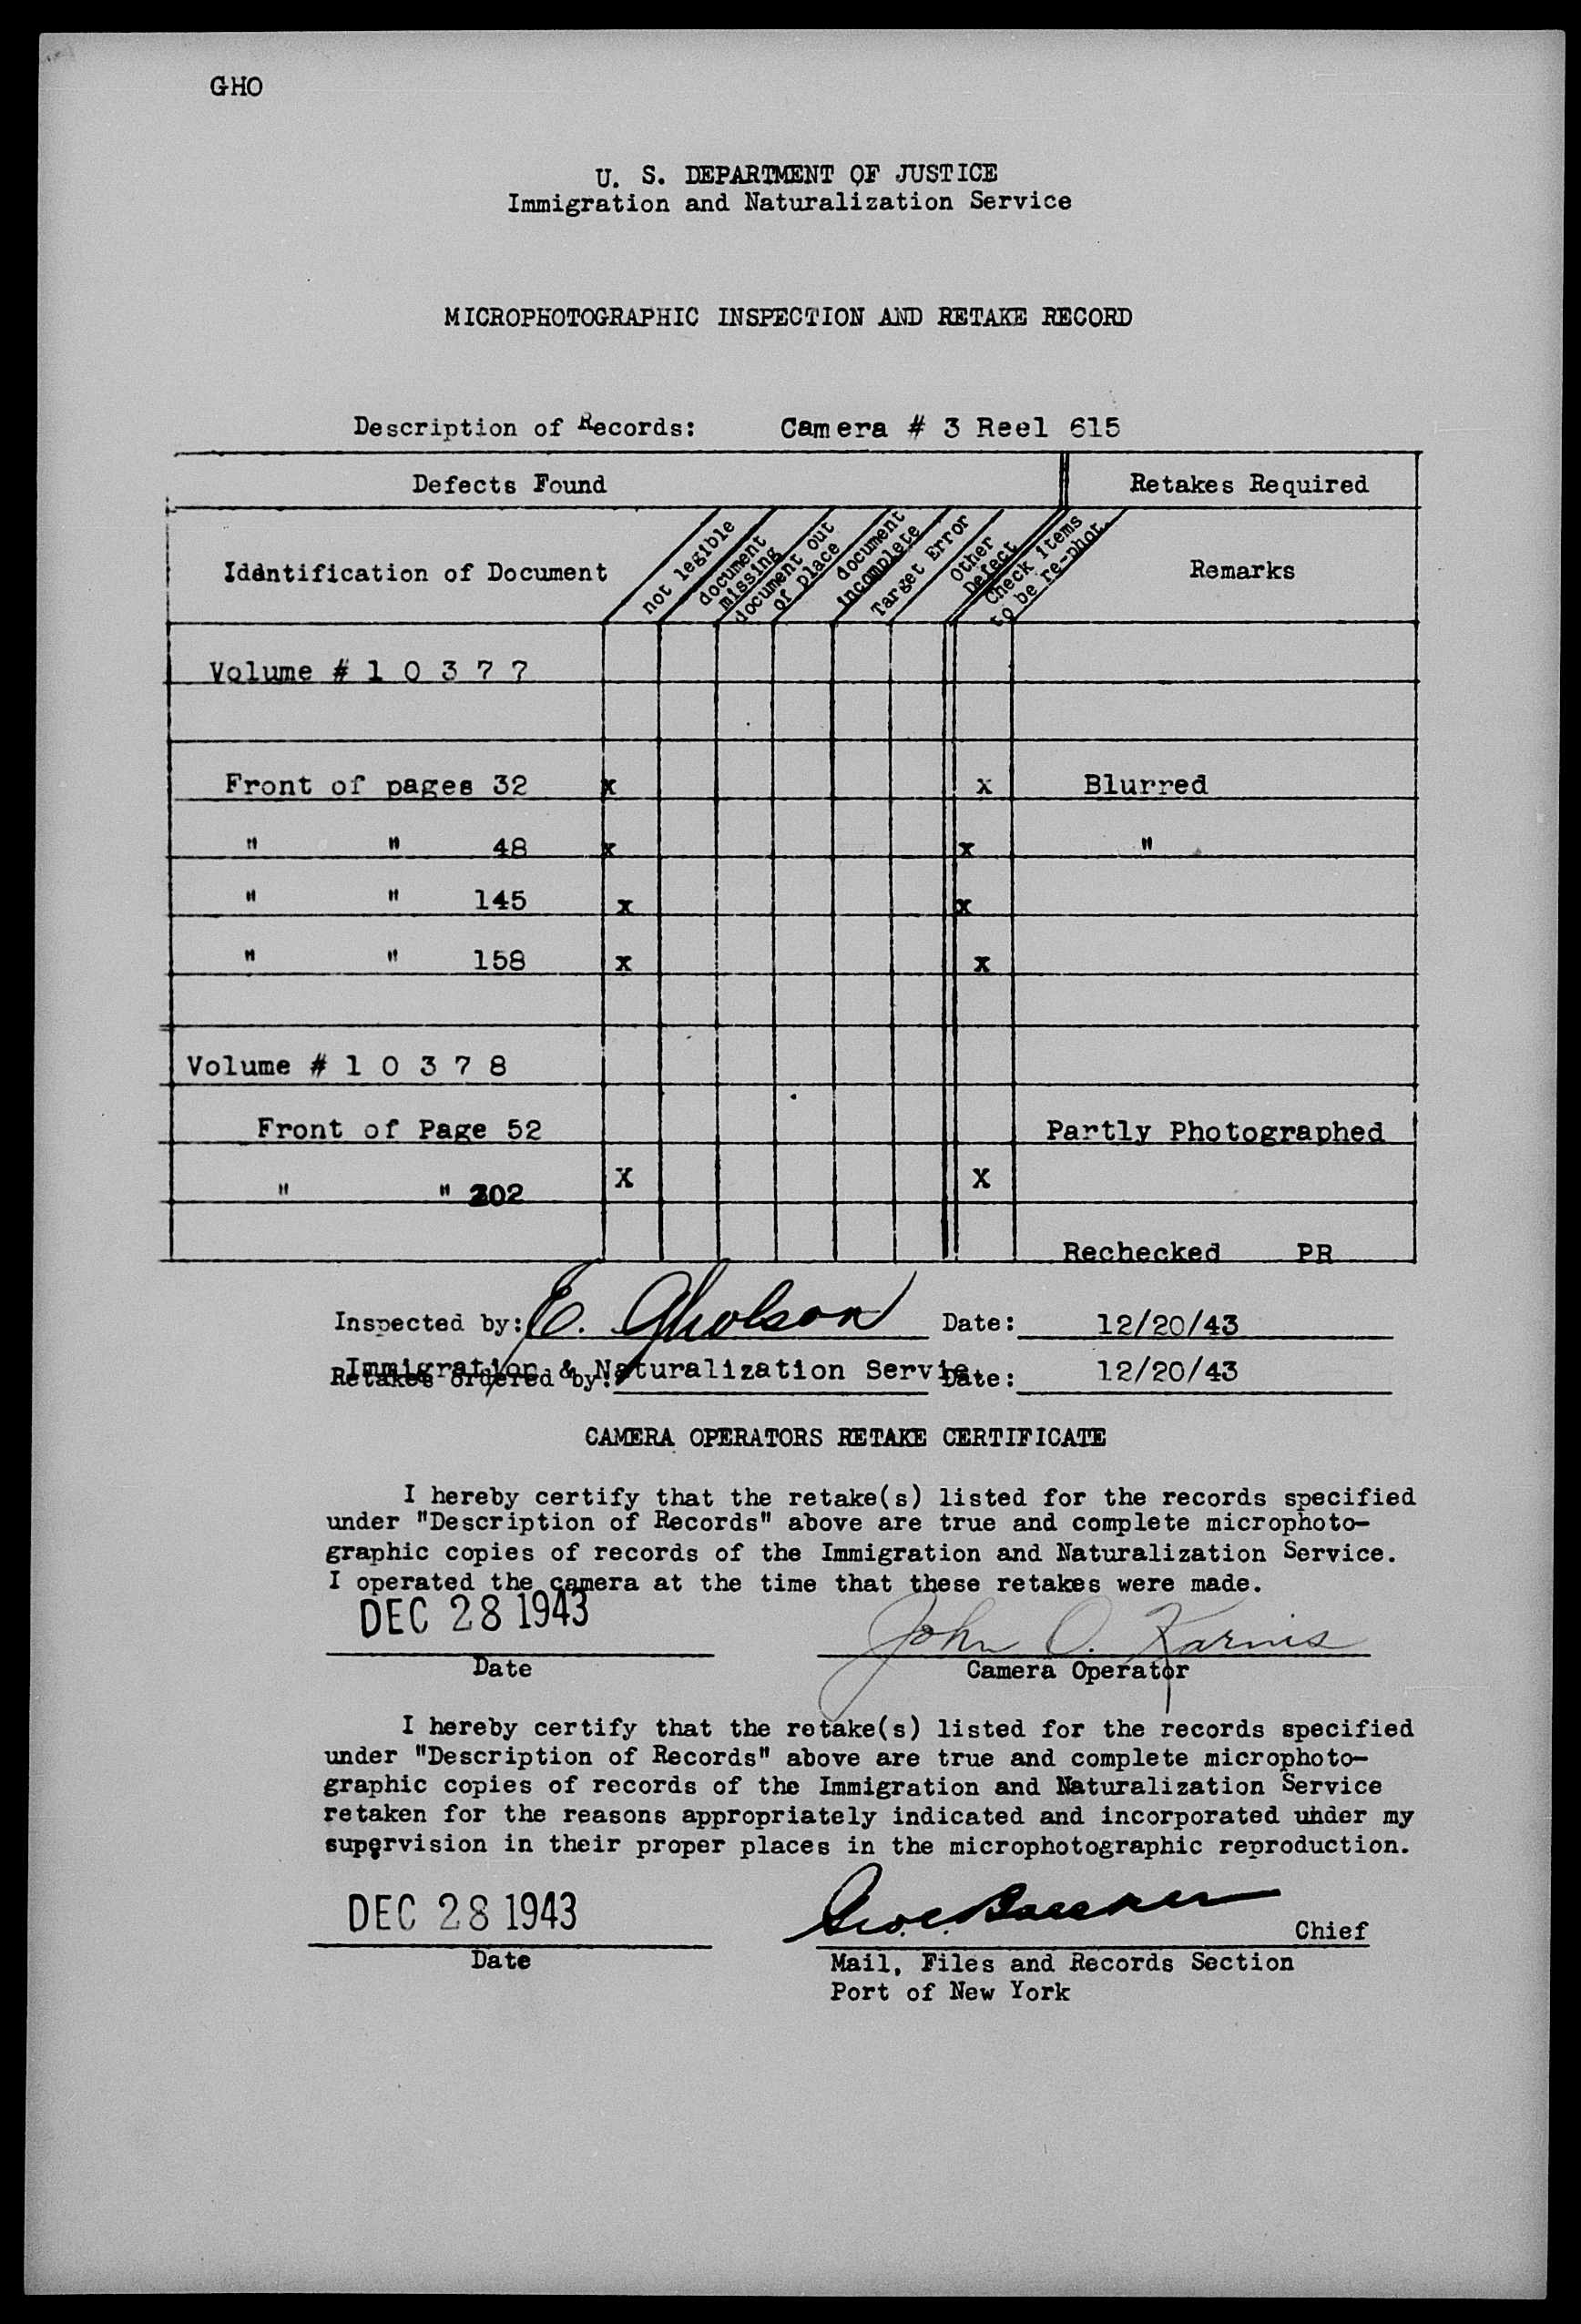 GHO
U. S. DEPARTMENT OF JUSTICE
Immigration and Naturalization Service
MICROPHOTOGRAPHIC INSPECTION AND RETAKE RECORD
Description of Records: Camera # 3 Reel 615
Defects Found Retakes Required
Identification of Document not legible document missing document out of place document incomplete Target Error Other Defect Check items to be re-phot. Remarks
Volume # 1 0 3 7 7
Front of pages 32 x x Blurred
" " 48 x x "
" " 145 x x
" " 158 x x
Volume # 1 0 3 7 8
Front of Page 52 Partly Photographed
" " 202 X X
Rechecked PR
Inspected by: E. Gholson Date: 12/20/43
Immigration & Naturalization Servie
Retakes ordered by: Date: 12/20/43
CAMERA OPERATORS RETAKE CERTIFICATE
I hereby certify that the retake(s) listed for the records specified
under "Description of Records" above are true and complete microphoto-
graphic copies of records of the Immigration and Naturalization Service.
I operated the camera at the time that these retakes were made.
DEC 28 1943 John O. Karnis
Date Camera Operator
I hereby certify that the retake(s) listed for the records specified
under "Description of Records" above are true and complete microphoto-
graphic copies of records of the Immigration and Naturalization Service
retaken for the reasons appropriately indicated and incorporated under my
supervision in their proper places in the microphotographic reproduction.
DEC 28 1943 Chief
Date Mail, Files and Records Section
Port of New York